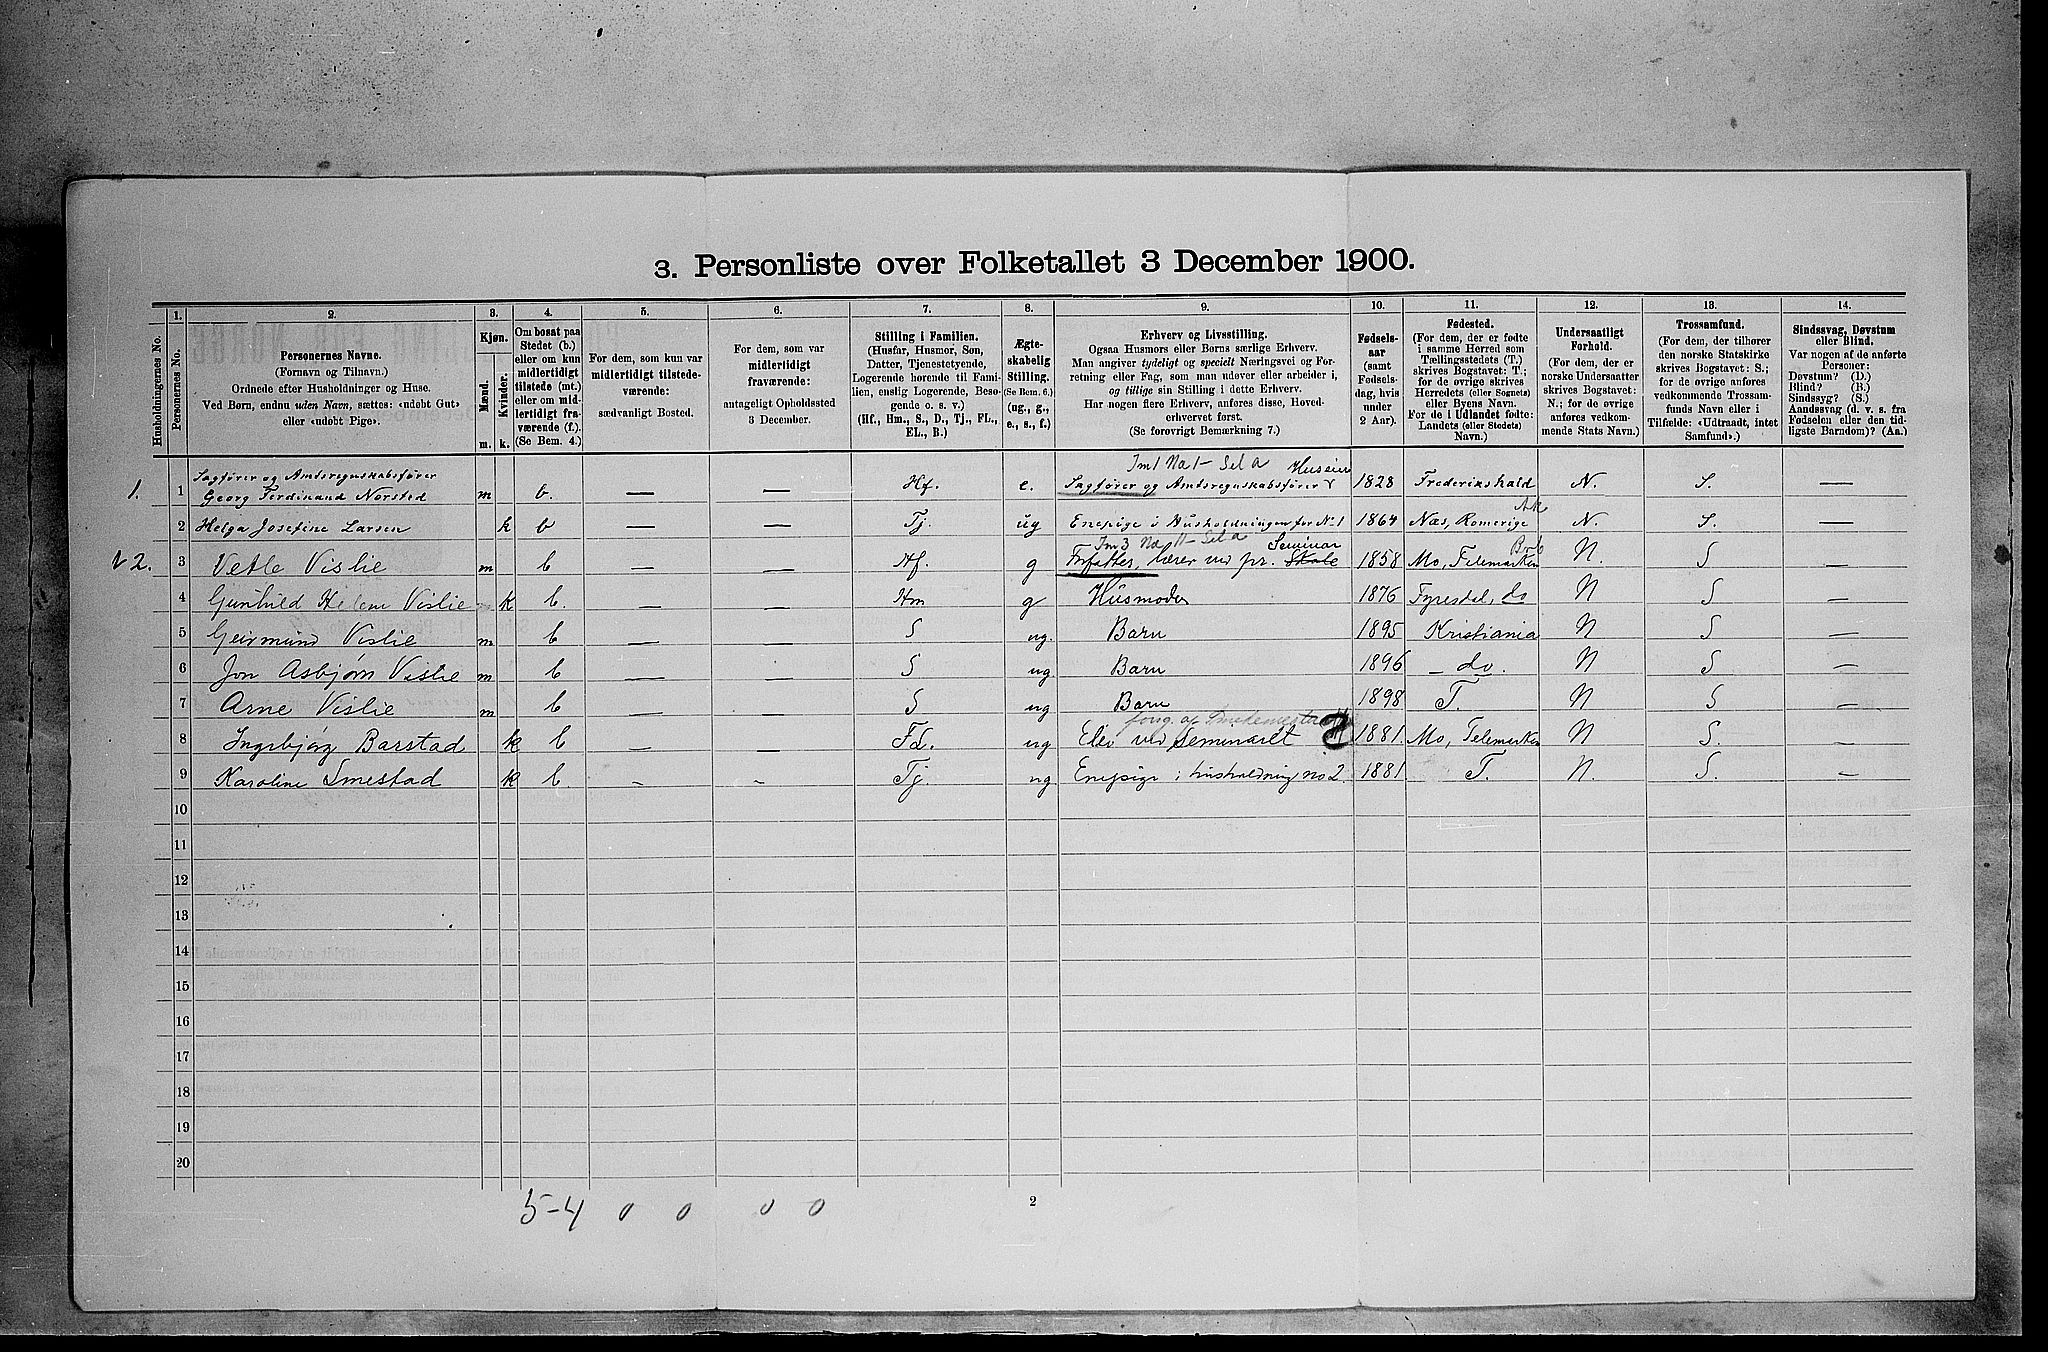 3. Personliste over Folketallet 3 December 1900.
Husholdningernes No.
1.
Personernes No.
2.
Personernes Navne.
(Fornavn og Tilnavn.)
Ordnede efter Husholdninger og Huse.
Ved Børn, endnu uden Navn, sættes: «udøbt Gut»
eller «udøbt Pige».
3.
Kjøn.
Mænd. Kvinder.
m. k.
4.
Om bosat paa
Stedet (b.)
eller om kun
midlertidigt
tilstede (mt.)
eller om mid-
lertidigt fra-
værende (f.).
(Se Bem. 4.)
5.
For dem, som kun var
midlertidigt tilstede-
værende:
sædvanligt Bosted.
6.
For dem, som var
midlertidigt
fraværende:
antageligt Opholdssted
3 December.
7.
Stilling i Familien.
(Husfar, Husmor, Søn,
Datter, Tjenestetyende,
Logerende hørende til Fami-
lien, enslig Logerende, Besø-
gende o. s. v.)
(Hf., Hm., S., D., Tj., FL.,
EL., B.)
8.
Ægte-
skabelig
Stilling.
(Se Bem. 6.)
(ug., g.,
e., s., f.)
9.
Erhverv og Livsstilling.
Ogsaa Husmors eller Børns særlige Erhverv.
Man angiver tydeligt og specielt Næringsvei og For-
retning eller Fag, som man udøver eller arbeider i,
og tillige sin Stilling i dette Erhverv.
Har nogen flere Erhverv, anføres disse, Hoved-
erhvervet først.
(Se forøvrigt Bemærkning 7.)
10.
Fødsels-
aar
(samt
Fødsels-
dag, hvis
under
2 Aar).
11.
Fødested.
(For dem, der er fødte
i samme Herred som
Tællingsstedets (T.)
skrives Bogstavet: T.;
for de øvrige skrives
Herredets (eller Sognets)
eller Byens Navn.
For de i Udlandet fødte:
Landets (eller Stedets)
Navn.)
12.
Undersaatligt
Forhold.
(For dem, der er
norske Undersaatter
skrives Bogstavet:
N.; for de øvrige
anføres vedkom-
mende Stats Navn.)
13.
Trossamfund.
(For dem, der tilhører
den norske Statskirke
skrives Bogstavet: S.;
for de øvrige anføres
vedkommende Trossam-
funds Navn eller i
Tilfælde: «Udtraadt, intet
Samfund».)
14.
Sindssvag, Døvstum
eller Blind.
Var nogen af de anførte
Personer:
Døvstum? (D.)
Blind? (B.)
Sindssyg? (S.)
Aandssvag (d. v. s. fra
Fødselen eller den tid-
ligste Barndom)? (Aa.)
Sagfører og Amtsregnskabsfører Huseier
1. 1 Georg Ferdinand Norsted m b. — — Hf. e. Sagfører og Amtsregnskabsfører 1828 Frederikshald N. S. —
Ak
2 Helga Josefine Larsen k b — — Tj. ug Enepige i Husholdningen for No 1 1864 Næs, Romerige N. S. —
Seminar
2. 3 Vetle Vislie m b — — Hf. g Forfatter, lærer ved pr. Skole 1858 Mo, Telemarken N. S —
4 Gunhild Helene Vislie k b. — — Hm g Husmoder 1876 Fyresdal, do N S —
5 Geirmund Vislie m b — — S ug. Barn 1895 Kristiania N S —
6 Jon Asbjørn Vislie m b — — S ug Barn 1896 — do. N S —
7 Arne Vislie m b — — S ug Barn 1898 T. N S —
8 Ingebjørg Barstad k b — — FL. ug Elev ved Seminaret 1881. Mo, Telemarken N S. —
9 Karoline Smestad k b. — — Tj. ug Enepige i husholdning no 2 1881 T. N. S. —
10
11
12
13
14
15
16
17
18
19
20
5-4 0 0 0 0
2